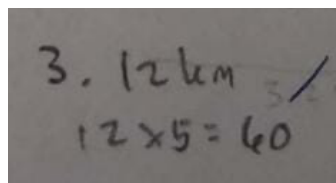 3. 12 km
12 x 5 = 60